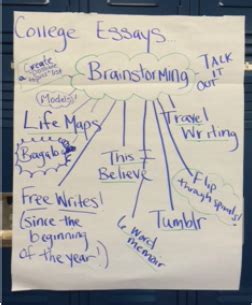 College Essays...
Create
a "possible
topics" list
Brainstorming
TALK
IT
OUT
Models!
Life Maps
Travel
Writing
Bagab
This I
Believe
Flip
through journals!
Free Writes!
(since the
beginning
of the year!)
6 word
memoir
Tumblr